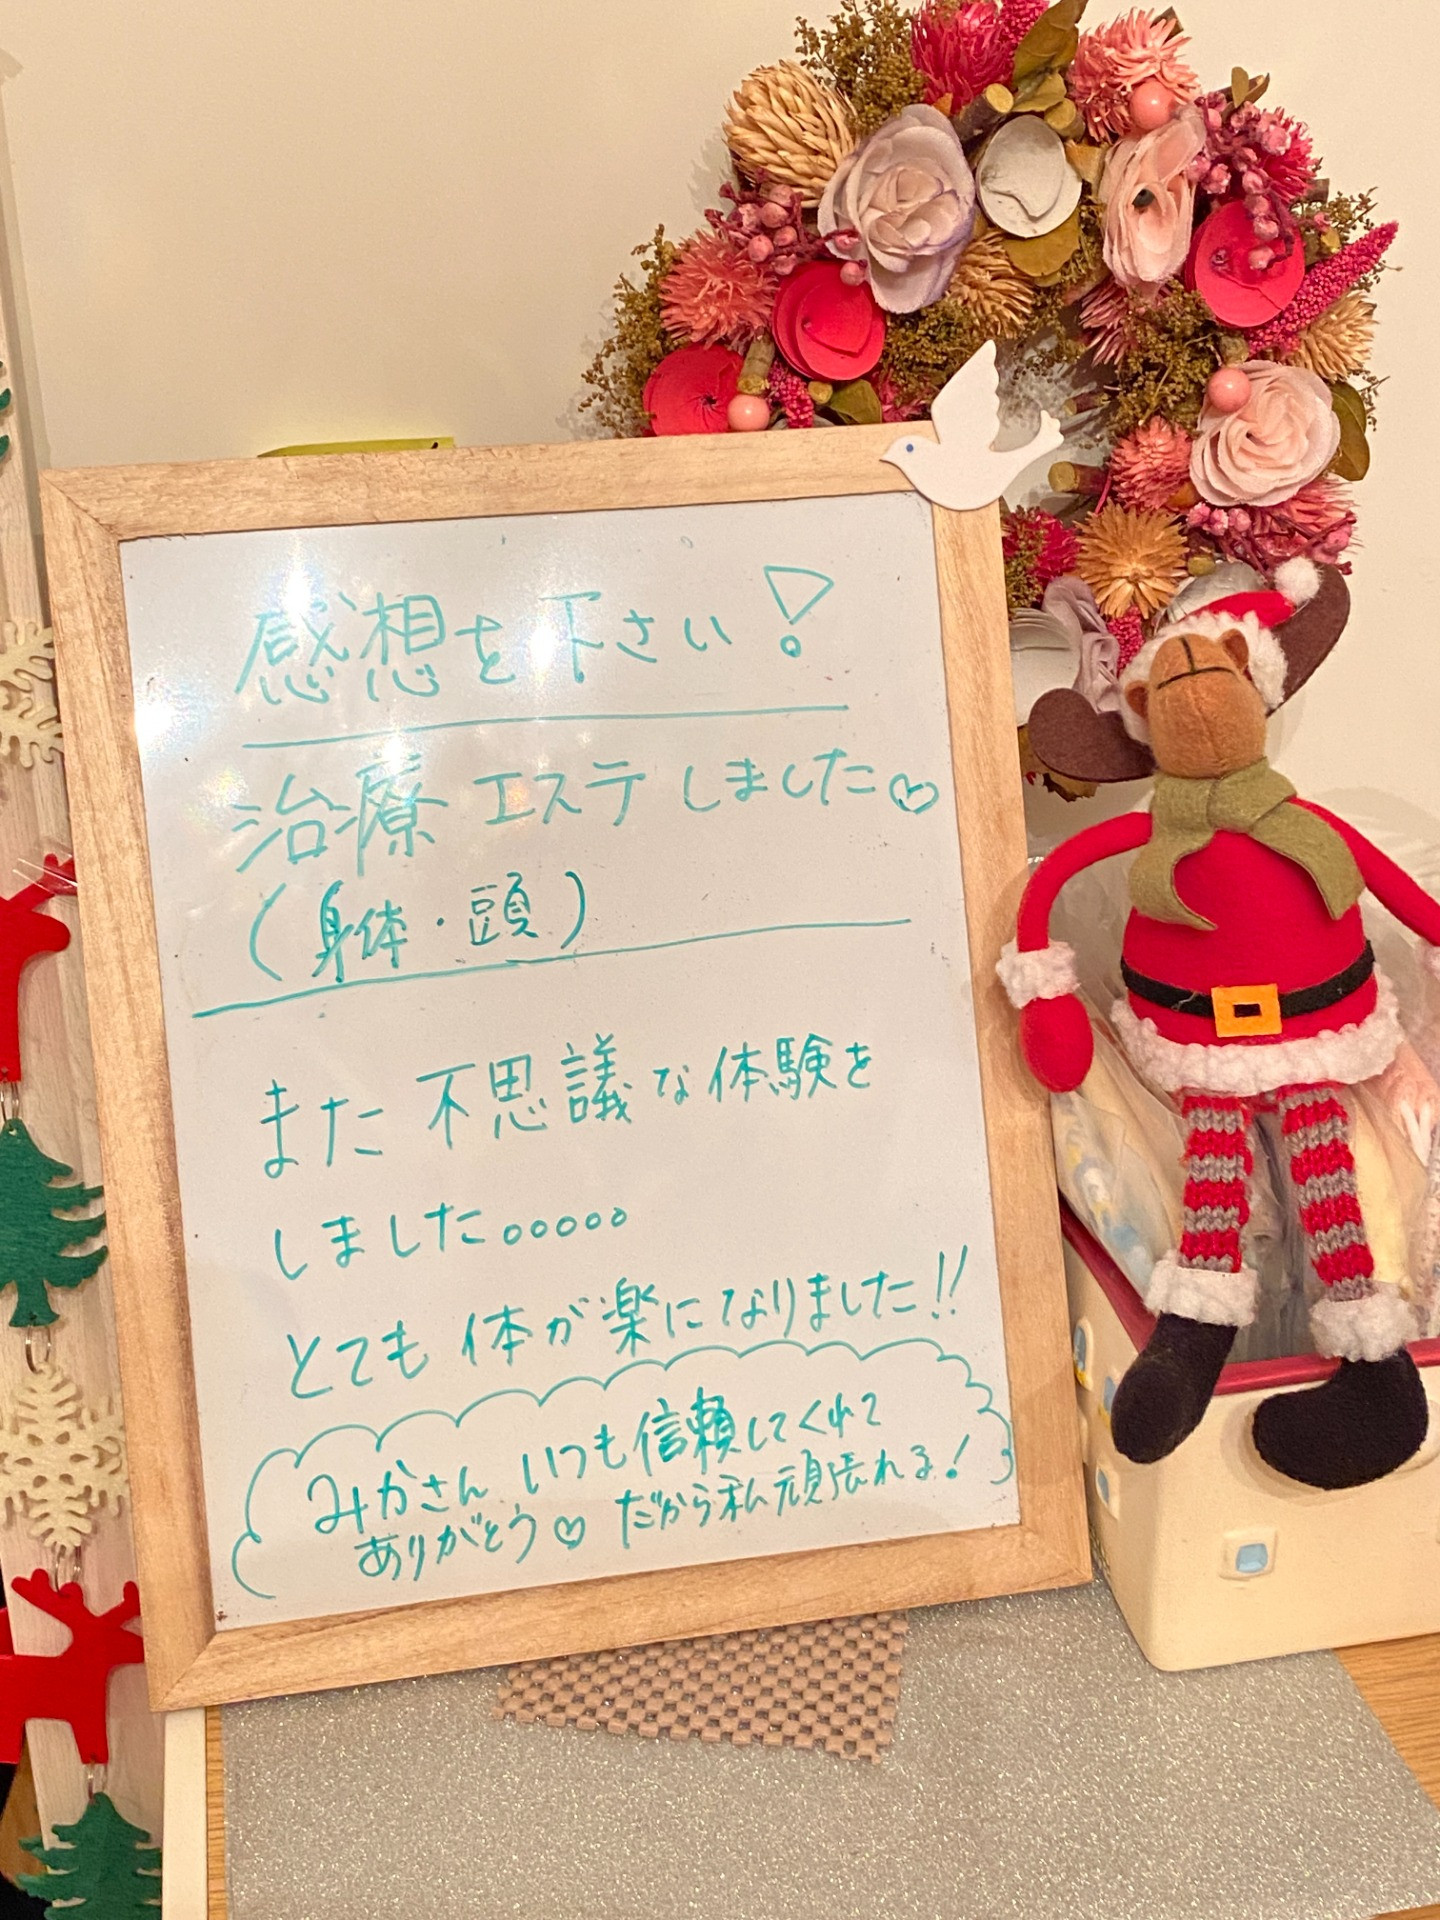 感想を下さい!
治療エステしました♡
(身体・頭)
また不思議な体験を
しました。。。。。
とても体が楽になりました!!
みかさんいつも信頼してくれて
ありがとう♡だから私頑張れる!